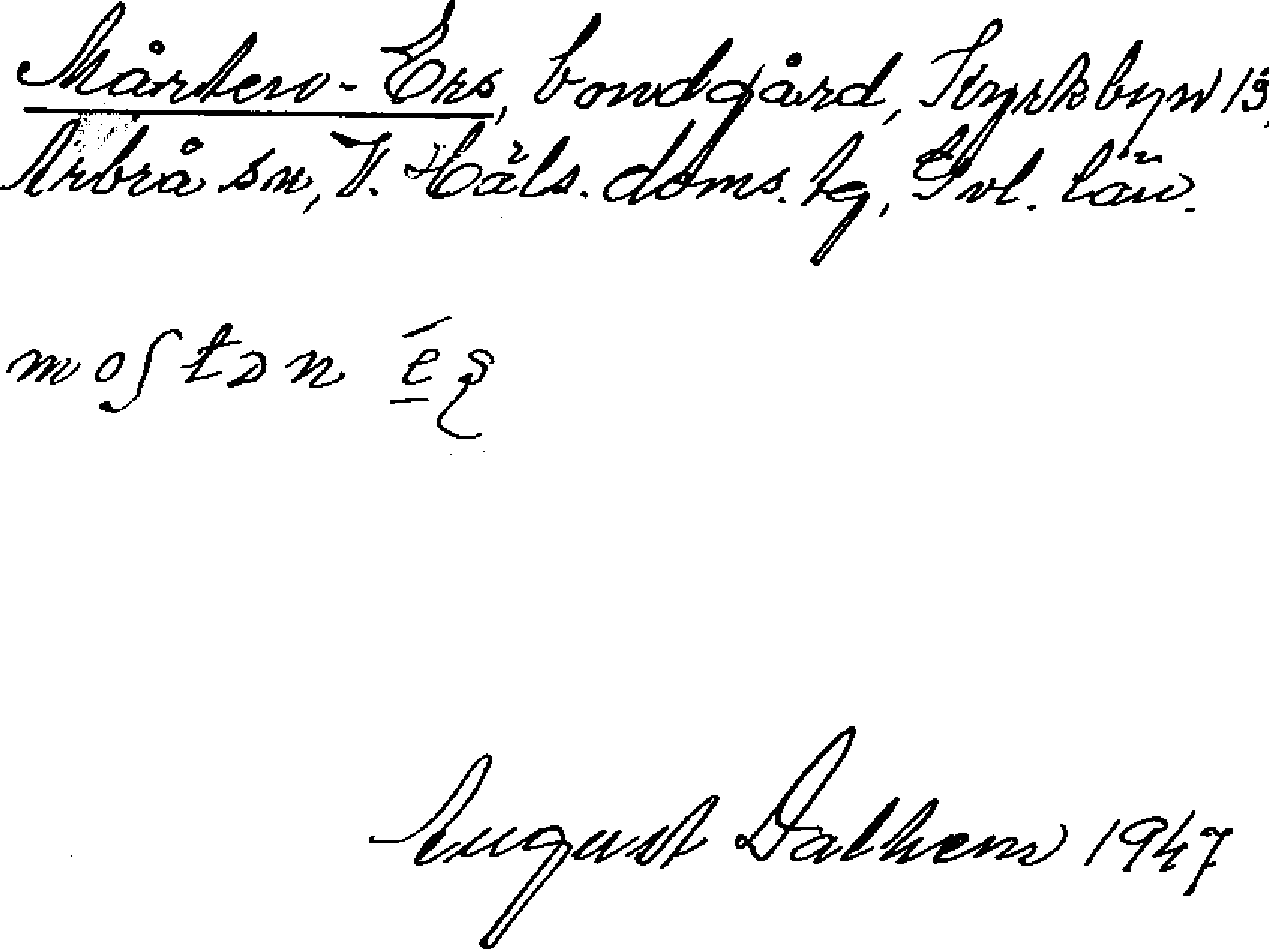 Mårten-Ers, bondgård, Kyrkbyn 13,
Arbrå sn, V. Häls. doms. tg, Gvl. län.
August Dalhem 1947